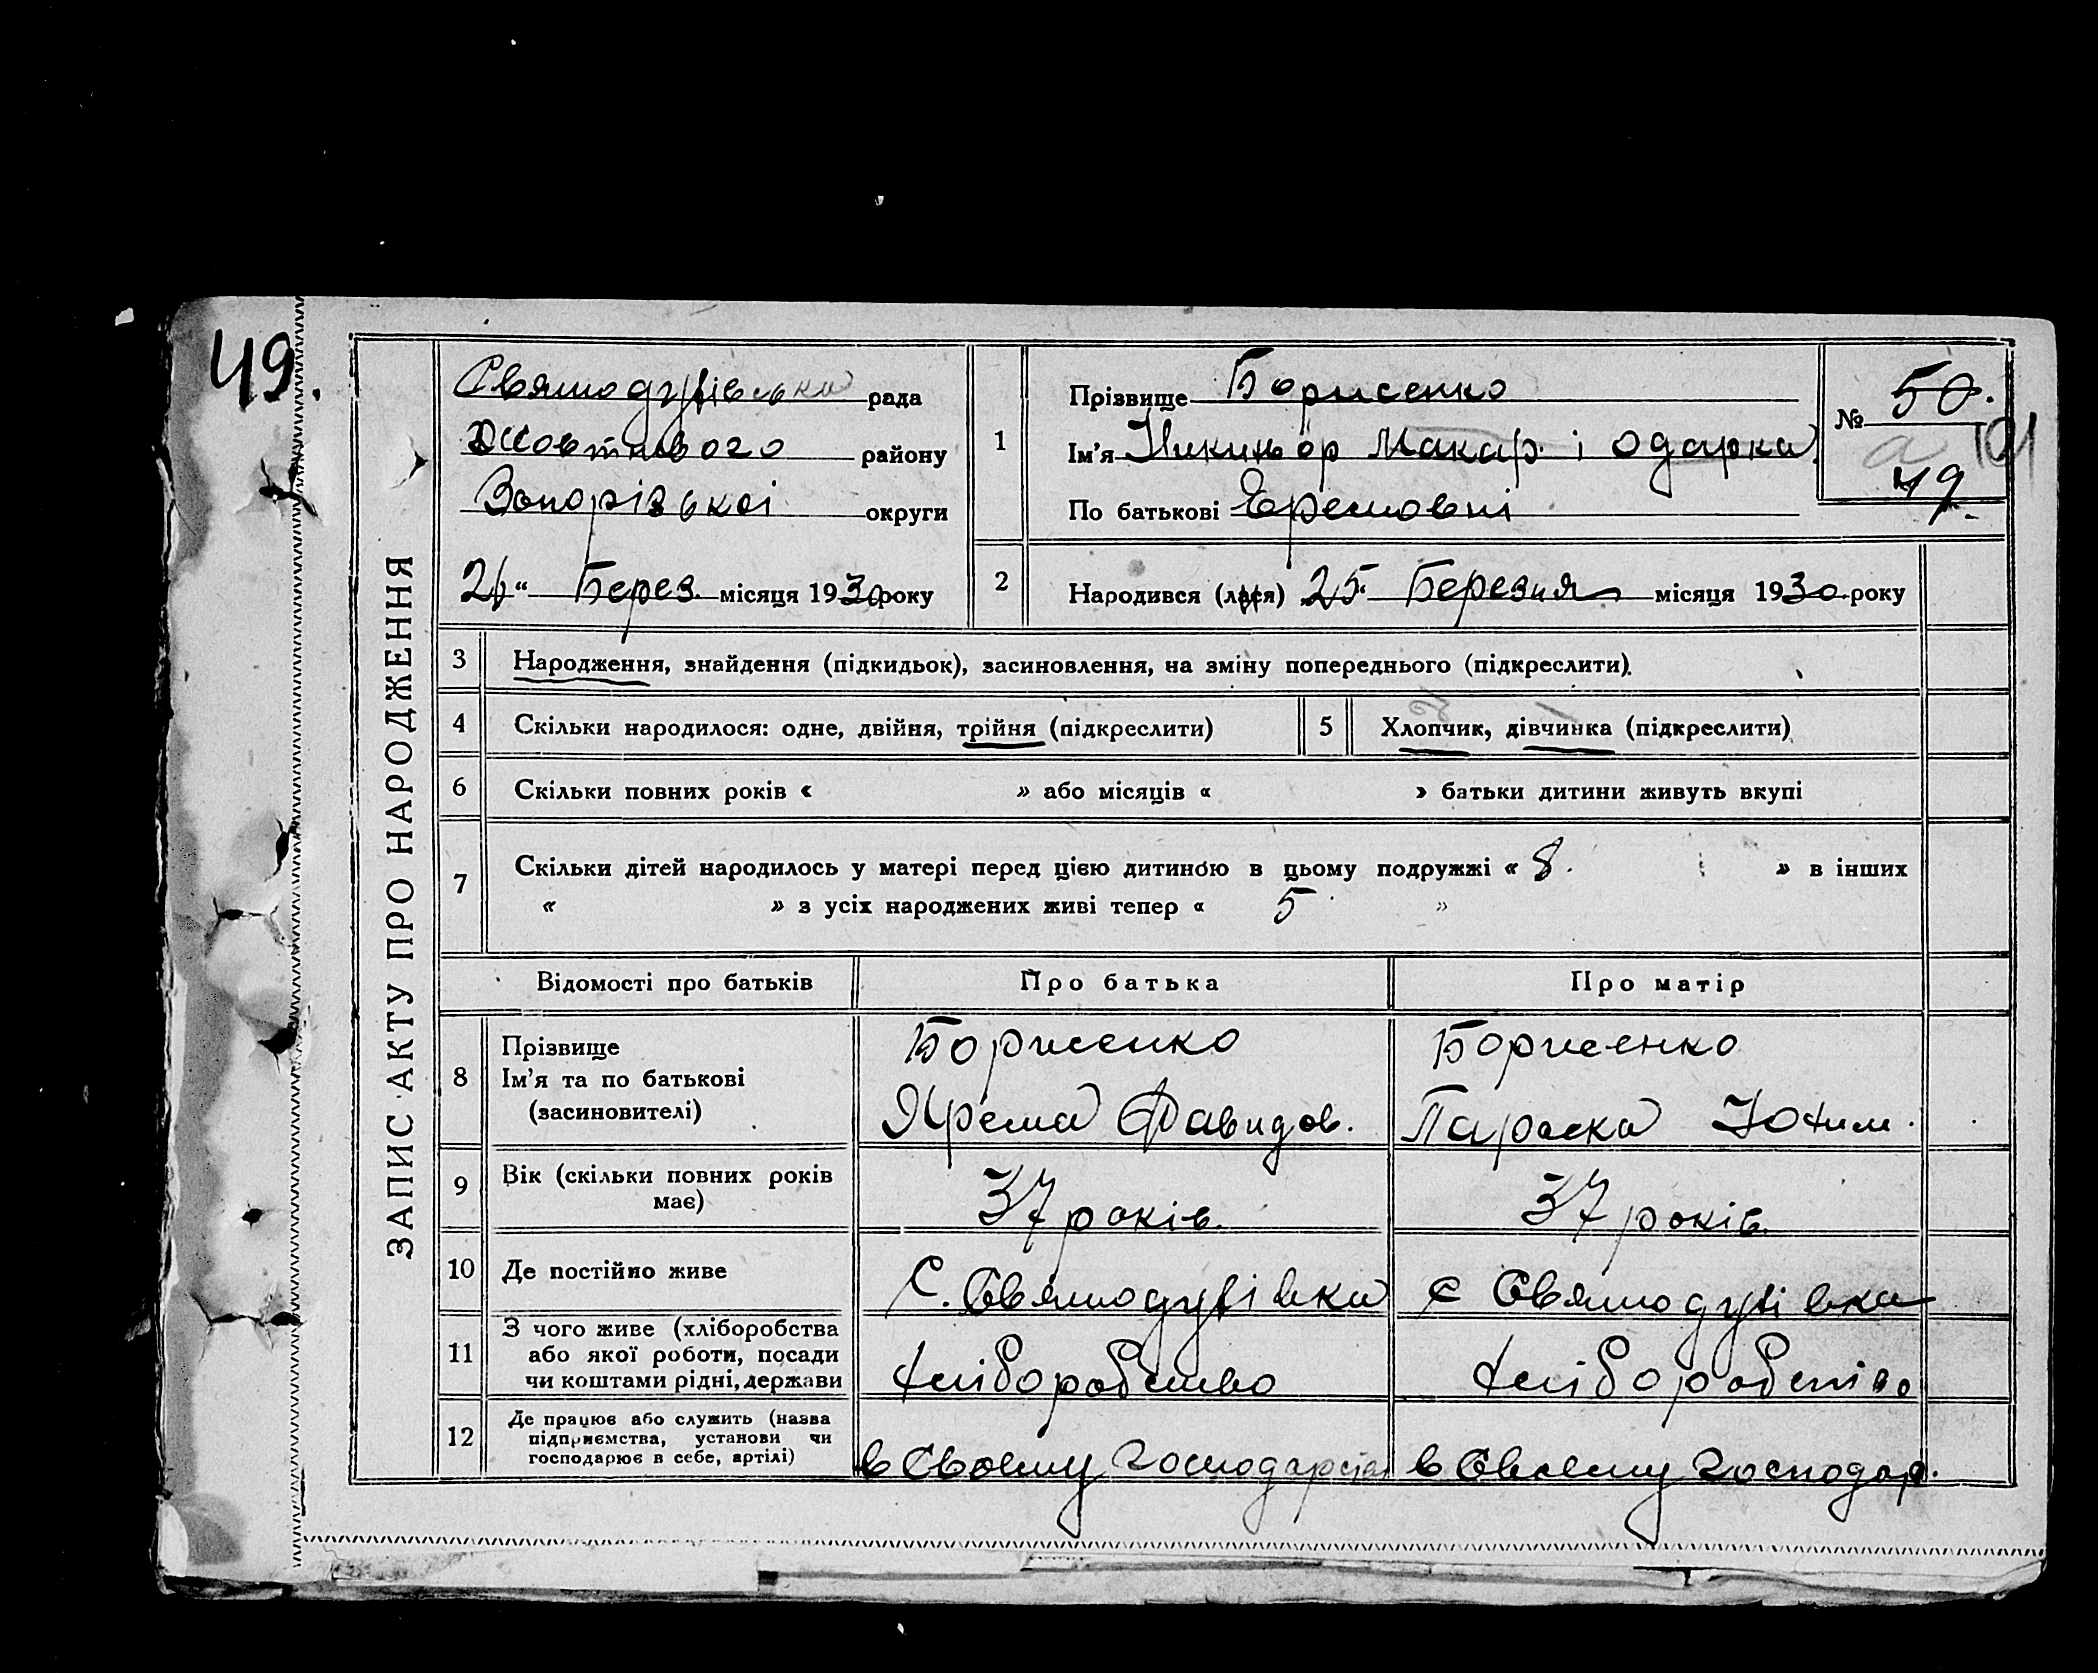 49.
ЗАПИС АКТУ ПРО НАРОДЖЕННЯ
Святодухівська рада
Жовтневого району
Запорізької округи
26 “ Берез. місяця 1930 року
1
Прізвище Борисенко
Ім'я Никиньор Макар. і Одарка
По батькові Єремовні
№ 50.
a 101
49.
2
Народився (лася) 25 Березня місяця 1930 року
3 Народження, знайдення (підкидьок), засиновлення, на зміну попереднього (підкреслити).
4 Скільки народилося: одне, двійня, трійня (підкреслити)
5 Хлопчик, дівчинка (підкреслити)
6 Скільки повних років « » або місяців « » батьки дитини живуть вкупі
7 Скільки дітей народилось у матері перед цією дитиною в цьому подружжі « 8. » в інших
« » з усіх народжених живі тепер « 5 »
Відомості про батьків Про батька Про матір
8 Прізвище
Ім'я та по батькові
(засиновителі)
Борисенко
Ярема Давидов.
Борисенко
Параска Юхим.
9 Вік (скільки повних років
має)
37 років.
37 років.
10 Де постійно живе
С. Святодухівка
с Святодухівка
11 З чого живе (хліборобства
або якої роботи, посади
чи коштами рідні, держави
хліборобство
хліборобство
12 Де працює або служить (назва
підприємства, установи чи
господарює в себе, артілі)
в своему господарстві
в своему господар.